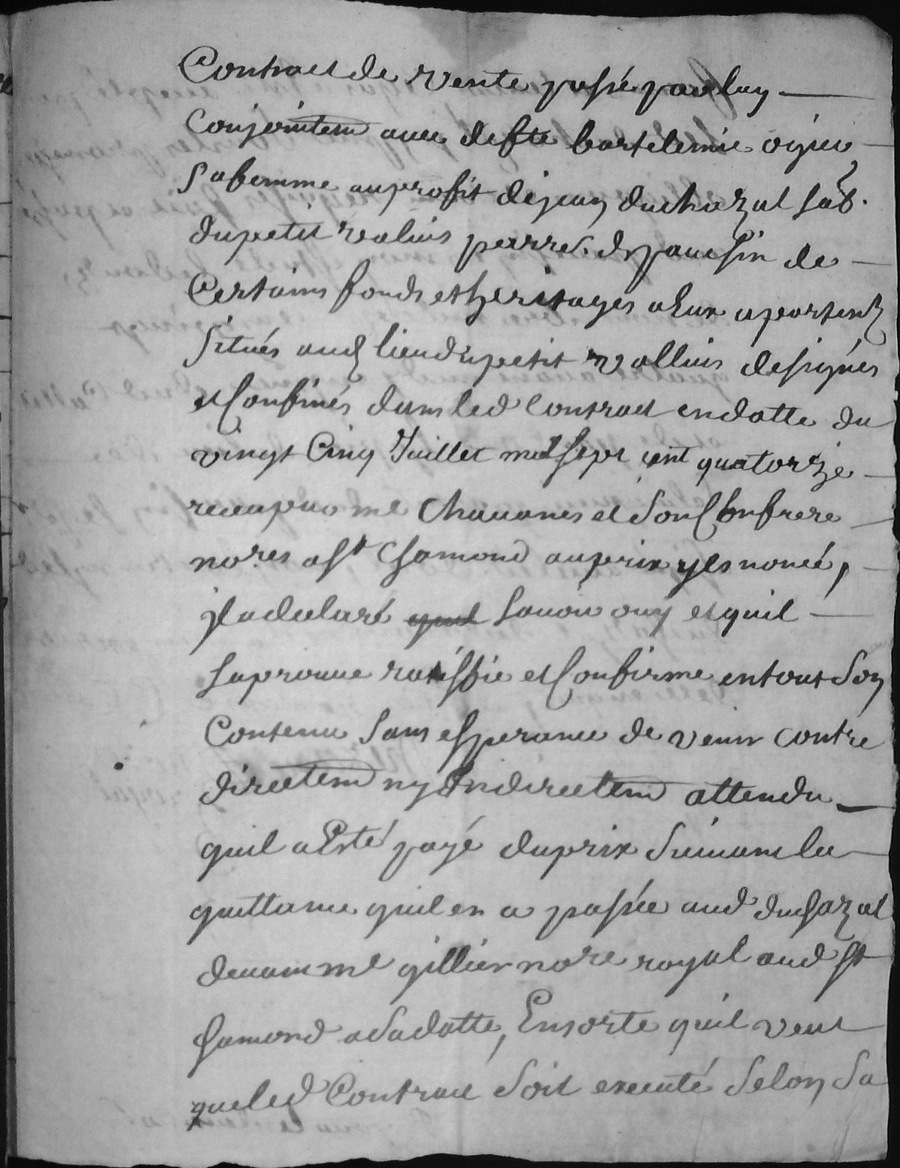 Contract de vente passé par luy
Conjointem avec deffte bartelemie
Sa femme au profit de jean duchazal lab.
du petit realuis parr. de de
Certains fonds et heritages a Eux apartents
Situés aud lieu du petit realluis designés
et Confinés dans led Contract en datte du
vingt Cinq Juillet mil sept cent quatorze
receu par me Chavanes et Son Confrere
nores a st Chamond au prix y esnoncé,
jl a declaré quil Savoir ouy et quil
Laprouve ratiffie et Confirme en tout Son
Contenu Sans esperance de venir contre
directem ny Indirectem attendu
quil a Esté payé du prix Suivant la
quittance quil en a passée aud duchazal
devant me gillier nore royal aud st
chamond a Sa datte, Ensorte quil veut
que led Contract Soit executé Selon Sa